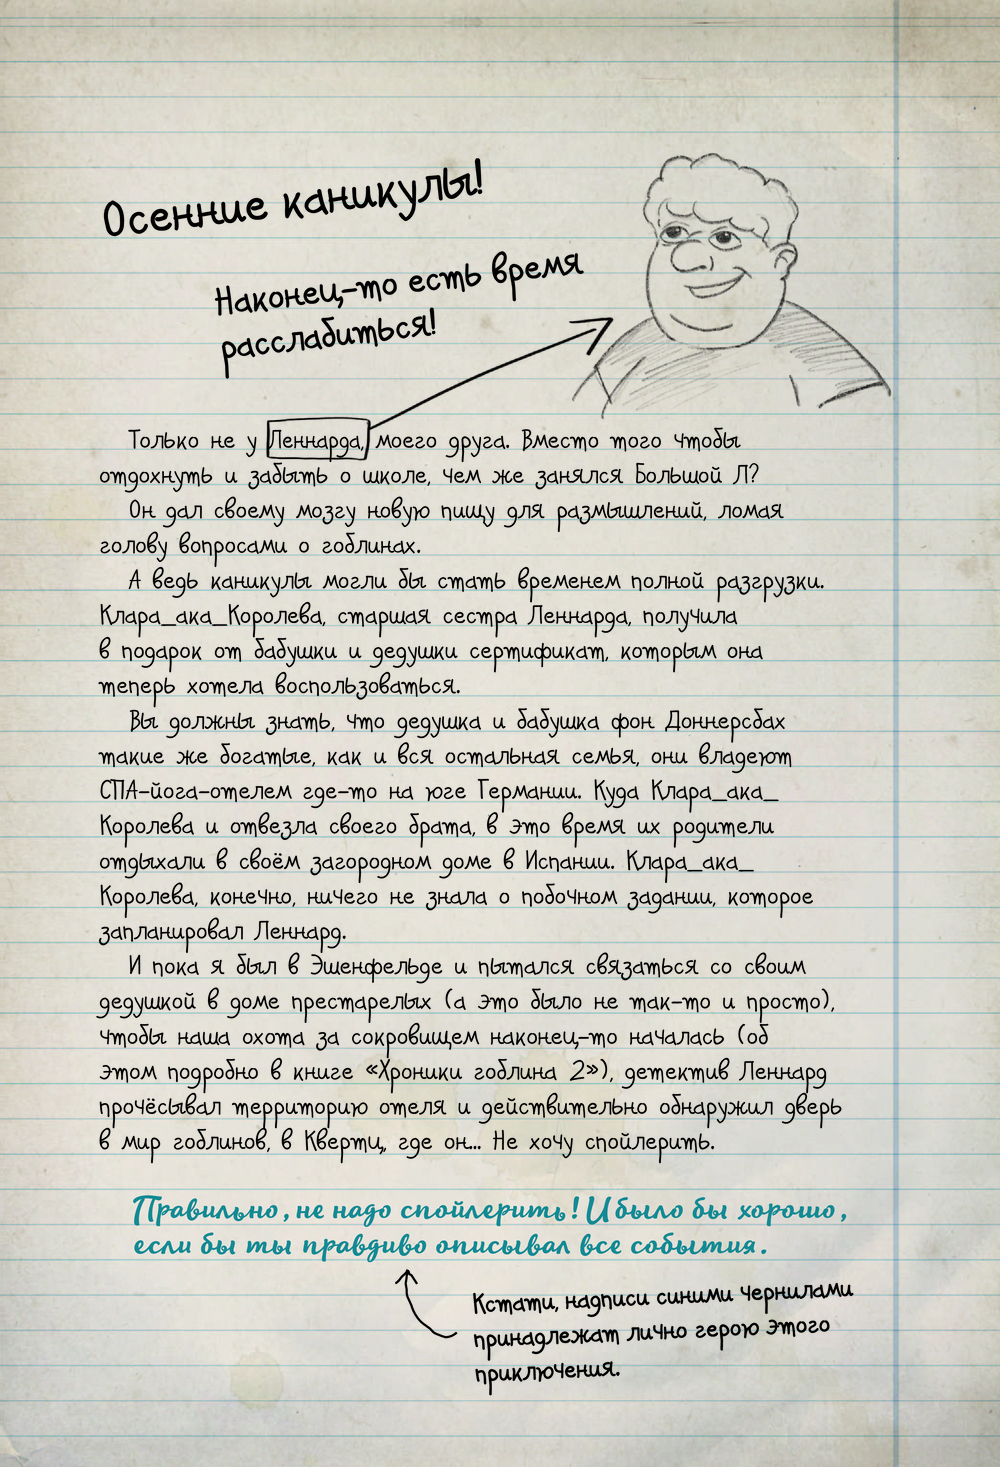 Осенние каникулы!
Наконец-то есть время
расслабиться!
Только не у Леннарда, моего друга. Вместо того чтобы
отдохнуть и забыть о школе, чем же занялся Большой Л?
Он дал своему мозгу новую пищу для размышлений, ломая
голову вопросами о гоблинах.
А ведь каникулы могли бы стать временем полной разгрузки.
Клара_ака_Королева, старшая сестра Леннарда, получила
в подарок от бабушки и дедушки сертификат, которым она
теперь хотела воспользоваться.
Вы должны знать, что дедушка и бабушка фон Доннерсбах
такие же богатые, как и вся остальная семья, они владеют
СПА-йога-отелем где-то на юге Германии. Куда Клара_ака_
Королева и отвезла своего брата, в это время их родители
отдыхали в своём загородном доме в Испании. Клара_ака_
Королева, конечно, ничего не знала о побочном задании, которое
запланировал Леннард.
И пока я был в Эшенфельде и пытался связаться со своим
дедушкой в доме престарелых (а это было не так-то и просто),
чтобы наша охота за сокровищем наконец-то началась (об
этом подробно в книге «Хроники гоблина 2»), детектив Леннард
прочёсывал территорию отеля и действительно обнаружил дверь
в мир гоблинов, в Квертц, где он... Не хочу спойлерить.
Правильно, не надо спойлерить! И было бы хорошо,
если бы ты правдиво описывал все события.
Кстати, надписи синими чернилами
принадлежат лично герою этого
приключения.